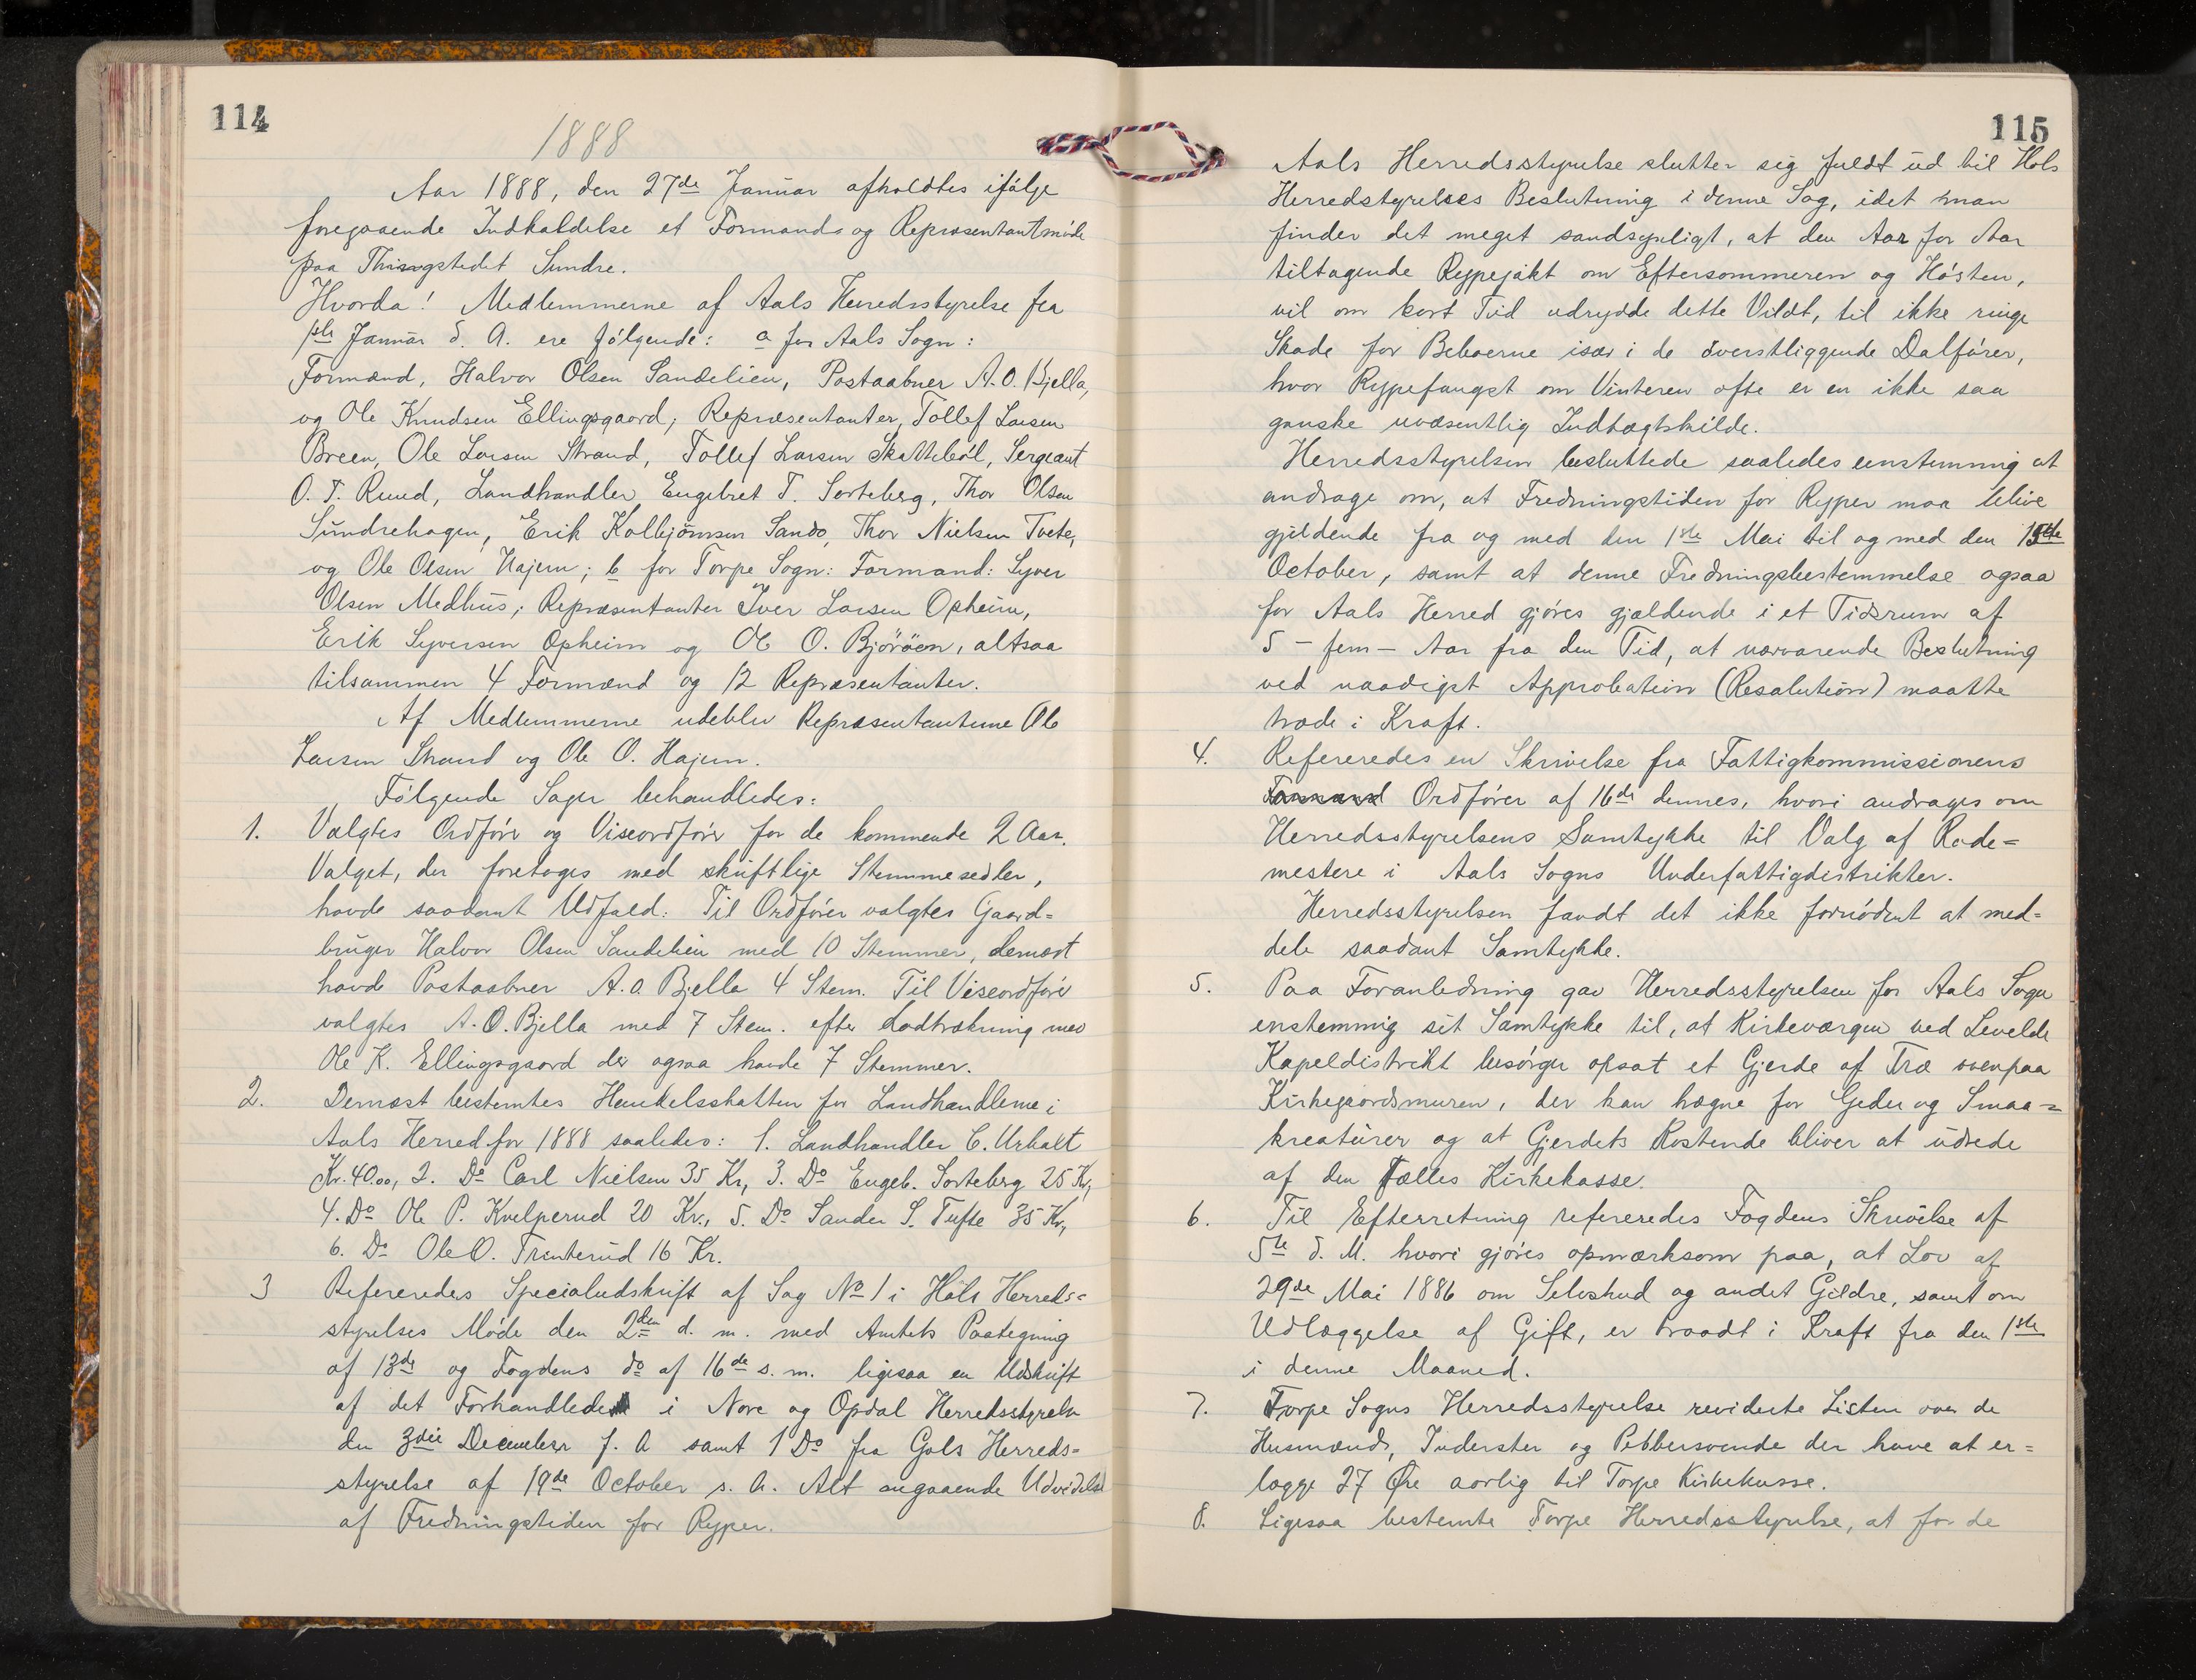 114
1888
Aar 1888, den 27de Januar afholdtes ifølge
foregaaende Indkaldelse et Formands og Repræsentantmøde
paa Thinogstedet Sundre.
Hvorda! Medlemmerne af Aals Herredsstyrelse fra
1ste Januar d. A. ere følgende: a for Aals Sogn:
Formænd, Halvor Olsen Sandelien, Postaabner A. O. Bjella,
og Ole Knudsen Ellingsgaard; Repræsentanter, Tollef Larsen
Breen, Ole Larsen Strand, Tollef Larsen Skattebøl, Sergeant
O. T. Ruud, Landhandler Engebret T. Sorteberg, Thor Olsen
Sundrehagen, Erik Kolbjørnsen Sando, Thor Nielsen Tvete,
og Ole Olsen Hajem; b for Torpe Sogn: Formand: Syver
Olsen Medhus; Repræsentanter Iver Larsen Opheim,
Erik Syversen Opheim og Ole O. Bjøröen, altsaa
tilsammen 4 Formænd og 12 Repræsentanter.
Af Medlemmerne udeblev Repræsentanterne Ole
Larsen Strand og Ole O. Hajem.
Følgende Sager behandledes:
1. Valgtes Ordfører og Viseordfører for de kommende 2 Aar.
Valget, der foretoges med skriftlige Stemmesedler,
havde saadant Udfald: Til Ordfører valgtes Gaard=
bruger Halvor Olsen Sandelien med 10 Stemmer, dernæst
havde Postaabner A. O. Bjella 4 Stem. Til Viseordfører
valgtes A. O. Bjella med 7 Stem. efter Lodtrækning med
Ole K. Ellingsgaard der ogsaa havde 7 Stemmer.
2. Dernæst bestemtes Handelsskatten for Landhandlerne i
Aals Herred for 1888 saaledes: 1. Landhandler C. Urhalt
Kr. 40.00, 2. Do Carl Nielsen 35 Kr, 3. Do Engeb. Sorteberg 25 Kr,
4. Do Ole P. Kvelperud 20 Kr., 5. Do Sander S. Tufte 35 Kr,
6. Do Ole O. Trinterud 16 Kr.
3 Refereredes Specialudskrift af Sag No 1 i Hols Herreds=
styrelses Møde den 2den d. m. med Amtets Paategning
af 13de og Fogdens do af 16de s. m. ligesaa en Udskrift
af det Forhandlede i Nore og Opdal Herredsstyrelse
den 3die December f. A samt 1 Do fra Gols Herreds=
styrelse af 19de October s. A. Alt angaaende Udvidelse
af Fredningstiden for Ryper.
115
Aals Herredsstyrelse slutter sig fuldt ud til Hols
Herredstyrelses Beslutning i denne Sag, idet man
finder det meget sandsynligt, at den Aar for Aar
tiltagende Rypejakt om Eftersommeren og Høsten,
vil om kort Tid udrydde dette Vildt, til ikke ringe
Skade for Beboerne især i de øverstliggende Dalfører,
hvor Rypefangst om Vinteren ofte er en ikke saa
ganske uvæsentlig Indtægtskilde.
Herredsstyrelsen besluttede saaledes eenstemmig at
andrage om, at Fredningstiden for Ryper maa blive
gjeldende fra og med den 1ste Mai til og med den 15de
October, samt at denne Fredningsbestemmelse ogsaa
for Aals Herred gjøres gjældende i et Tidsrum af
5 - fem - Aar fra den Tid, at nærværende Beslutning
ved naadigst Approbation (Resolution) maatte
træde i Kraft.
4. Refereredes en Skrivelse fra Fattigkommissionens
Formand Ordfører af 16de dennes, hvori andrages om
Herredsstyrelsens Samtykke til Valg af Rode=
mestere i Aals Sogns Underfattigdistrikter.
Herredsstyrelsen fandt det ikke fornødent at med=
dele saadant Samtykke.
5. Paa Foranledning gav Herredsstyrelsen for Aals Sogn
enstemmig sit Samtykke til, at Kirkeværgen ved Levelds
Kapeldistrikt besørger opsat et Gjerde af Træ ovenpaa
Kirkegaardsmuren, der kan hægne for Geder og Smaa=
kreaturer og at Gjerdets Kostende bliver at udrede
af den fælles Kirkekasse.
6. Til Efterretning refereredes Fogdens Skrivelse af
5te d. M. hvori gjøres opmærksom paa, at Lov af
29de Mai 1886 om Selvskud og andet Gildre, samt om
Udlæggelse af Gift, er traadt i Kraft fra den 1ste
i denne Maaned.
7. Torpe Sogns Herredsstyrelse reviderte Listen over de
Husmænd, Inderster og Pebbersvende der have at er=
lægge 27 Øre aarlig til Torpe Kirkekasse.
8. Ligesaa bestemte Torpe Herredsstyrelse, at for de